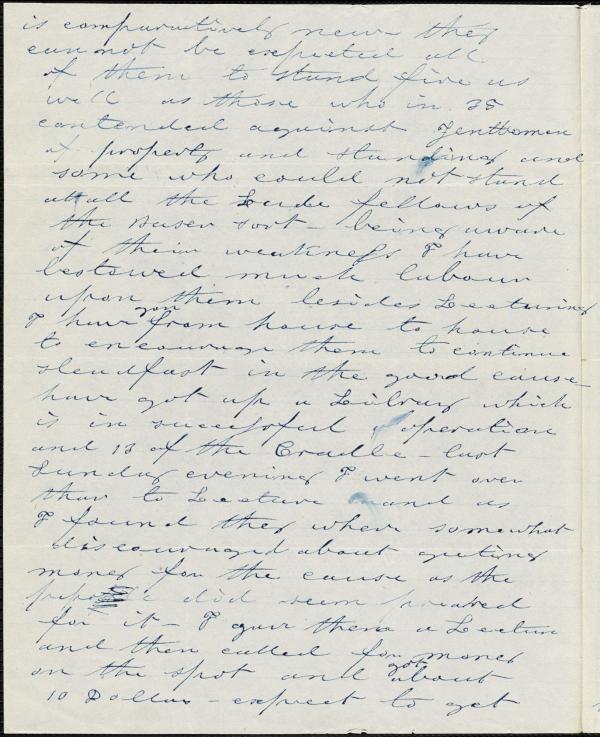 is comparatively new they
cannot be expected all
of them to stand fire as
well as those who in 35
contended against Gentlemen
of property and standing and
some who could not stand
atall the Lude fellows of
the Baser sort - being aware
of their weakness I have
bestowed much labour
upon them besides Lecturing
I have gon from house to house
to encourage them to continue
steadfast in the good cause
have got up a Library which
is in successful operation
and 13 of the Cradle - last
Sunday evening I went over
thar to Lecture and as
I found they where somewhat
discouraged about geting
money for the cause as the
did seem
for it - I gave them a Lecture
and then called for money
on the spot and got about
10 Dollars - expect to get